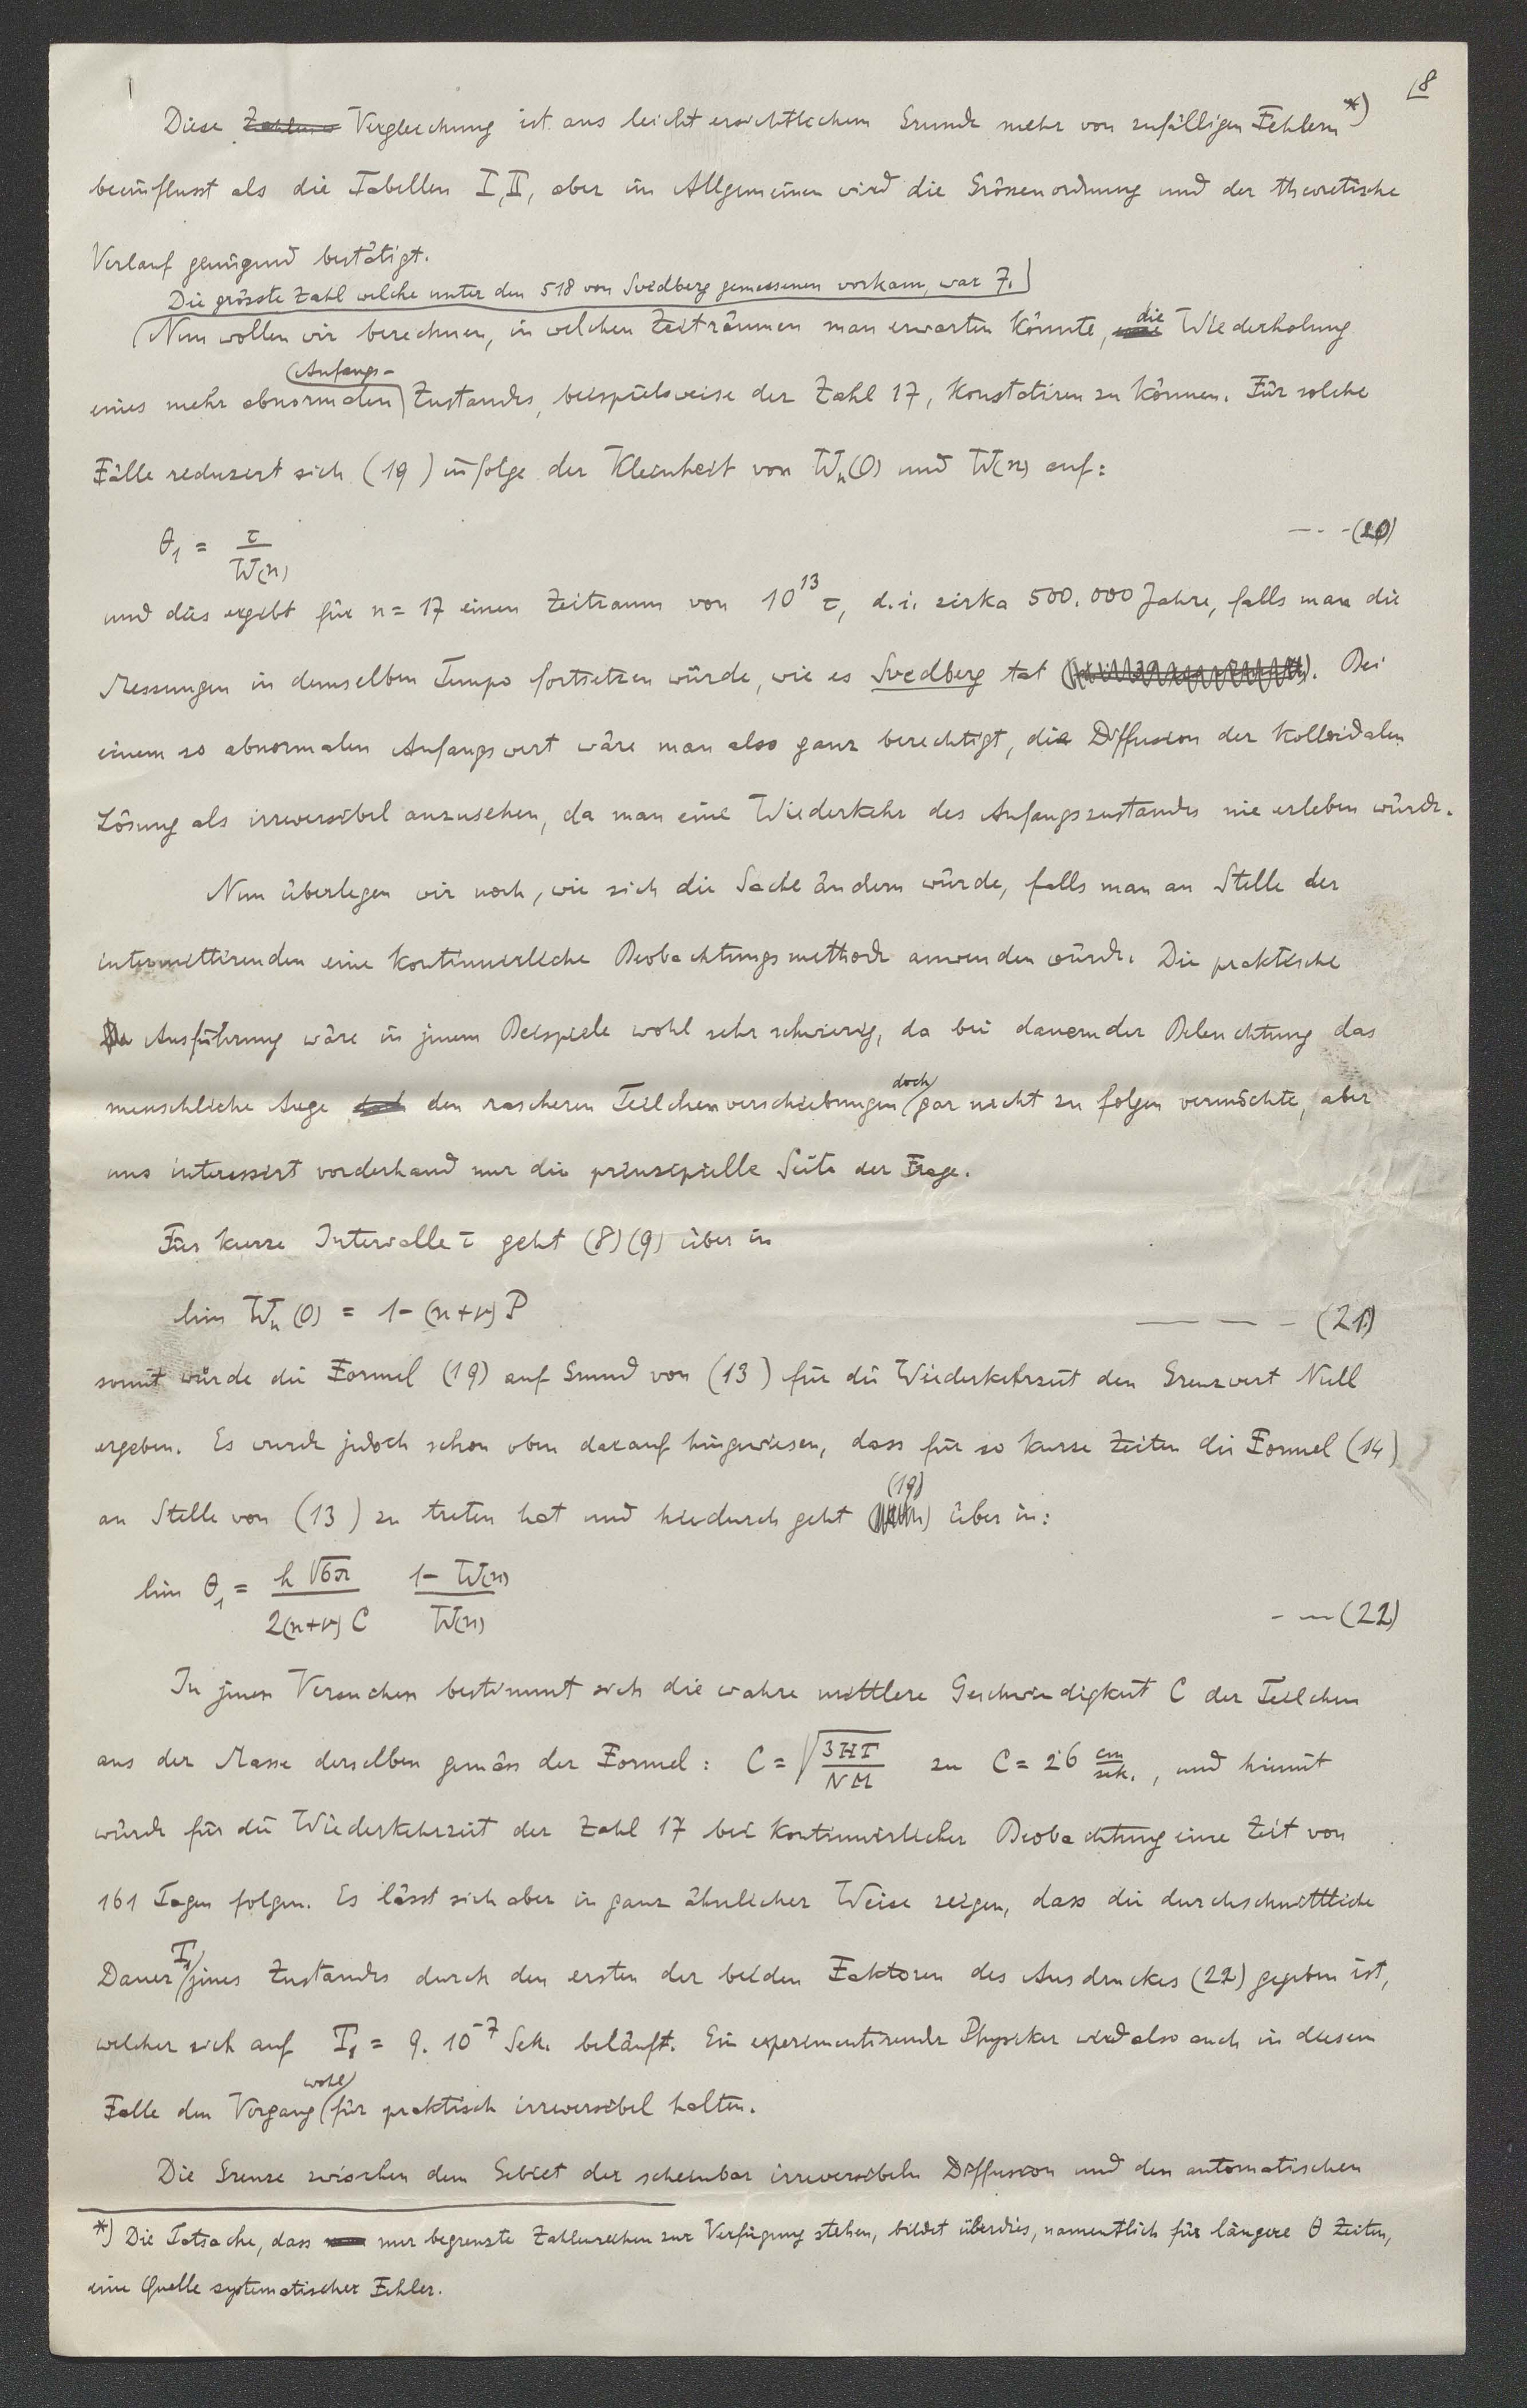 8
Diese Zahlen Vergleichung ist aus leicht ersichtlichem Grunde mehr von zufälligen Fehlern *)
beeinflusst als die Tabellen I, II, aber im Allgemeinen wird die Grössenordnung und der theoretische
Verlauf genügend bestätigt.
Die grösste Zahl welche unter den 518 von Svedberg gemessenen vorkam, war 7.
Nun wollen wir berechnen, in welchen Zeiträumen man erwarten könnte, die Wiederholung
eines mehr abnormalen Anfangs- Zustandes, beispielsweise der Zahl 17, konstatiren zu können. Für solche
Fälle reduzirt sich (19) infolge der Kleinheit von Wn(0) und W(n) auf:
θ1 = τ / W(n) --- (20)
und dies ergibt für n = 17 einen Zeitraum von 10^13 τ, d.i. zirka 500.000 Jahre, falls man die
Messungen in demselben Tempo fortsetzen würde, wie es Svedberg tat. Bei
einem so abnormalen Anfangswert wäre man also ganz berechtigt, die Diffusion der kolloidalen
Lösung als irreversibel anzusehen, da man eine Wiederkehr des Anfangszustandes nie erleben würde.
Nun überlegen wir noch, wie sich die Sache ändern würde, falls man an Stelle der
intermittirenden eine kontinuirliche Beobachtungsmethode anwenden würde. Die praktische
Ausführung wäre in jenem Beispiele wohl sehr schwierig, da bei dauernder Beleuchtung das
menschliche Auge den rascheren Teilchenverschiebungen doch gar nicht zu folgen vermöchte, aber
uns interessirt vorderhand nur die prinzipielle Seite der Frage.
Für kurze Intervalle τ geht (8)(9) über in
lim Wn(0) = 1 - (n+ν) P ---- (21)
somit würde die Formel (19) auf Grund von (13) für die Wiederkehrzeit den Grenzwert Null
ergeben. Es wurde jedoch schon oben darauf hingewiesen, dass für so kurze Zeiten die Formel (14)
an Stelle von (13) zu treten hat und hiedurch geht (19) über in:
lim θ1 = h √6π / 2(n+ν) C 1 - W(n) / W(n) -- (22)
In jenen Versuchen bestimmt sich die wahre mittlere Geschwindigkeit C der Teilchen
aus der Masse derselben gemäss der Formel: C = √(3HT / NM) zu C = 26 cm/sek., und hiemit
würde für die Wiederkehrzeit der Zahl 17 bei kontinuirlicher Beobachtung eine Zeit von
161 Tagen folgen. Es lässt sich aber in ganz ähnlicher Weise zeigen, dass die durchschnittliche
Dauer T1 jenes Zustandes durch den ersten der beiden Faktoren des Ausdruckes (22) gegeben ist,
welcher sich auf T1 = 9. 10^-7 Sek. beläuft. Ein experimentirender Physiker wird also auch in diesem
Falle den Vorgang wohl für praktisch irreversibel halten.
Die Grenze zwischen dem Gebiet der scheinbar irreversibeln Diffusion und den automatischen
*) Die Tatsache, dass nur begrenzte Zahlenreihen zur Verfügung stehen, bildet überdies, namentlich für längere θ Zeiten,
eine Quelle systematischer Fehler.